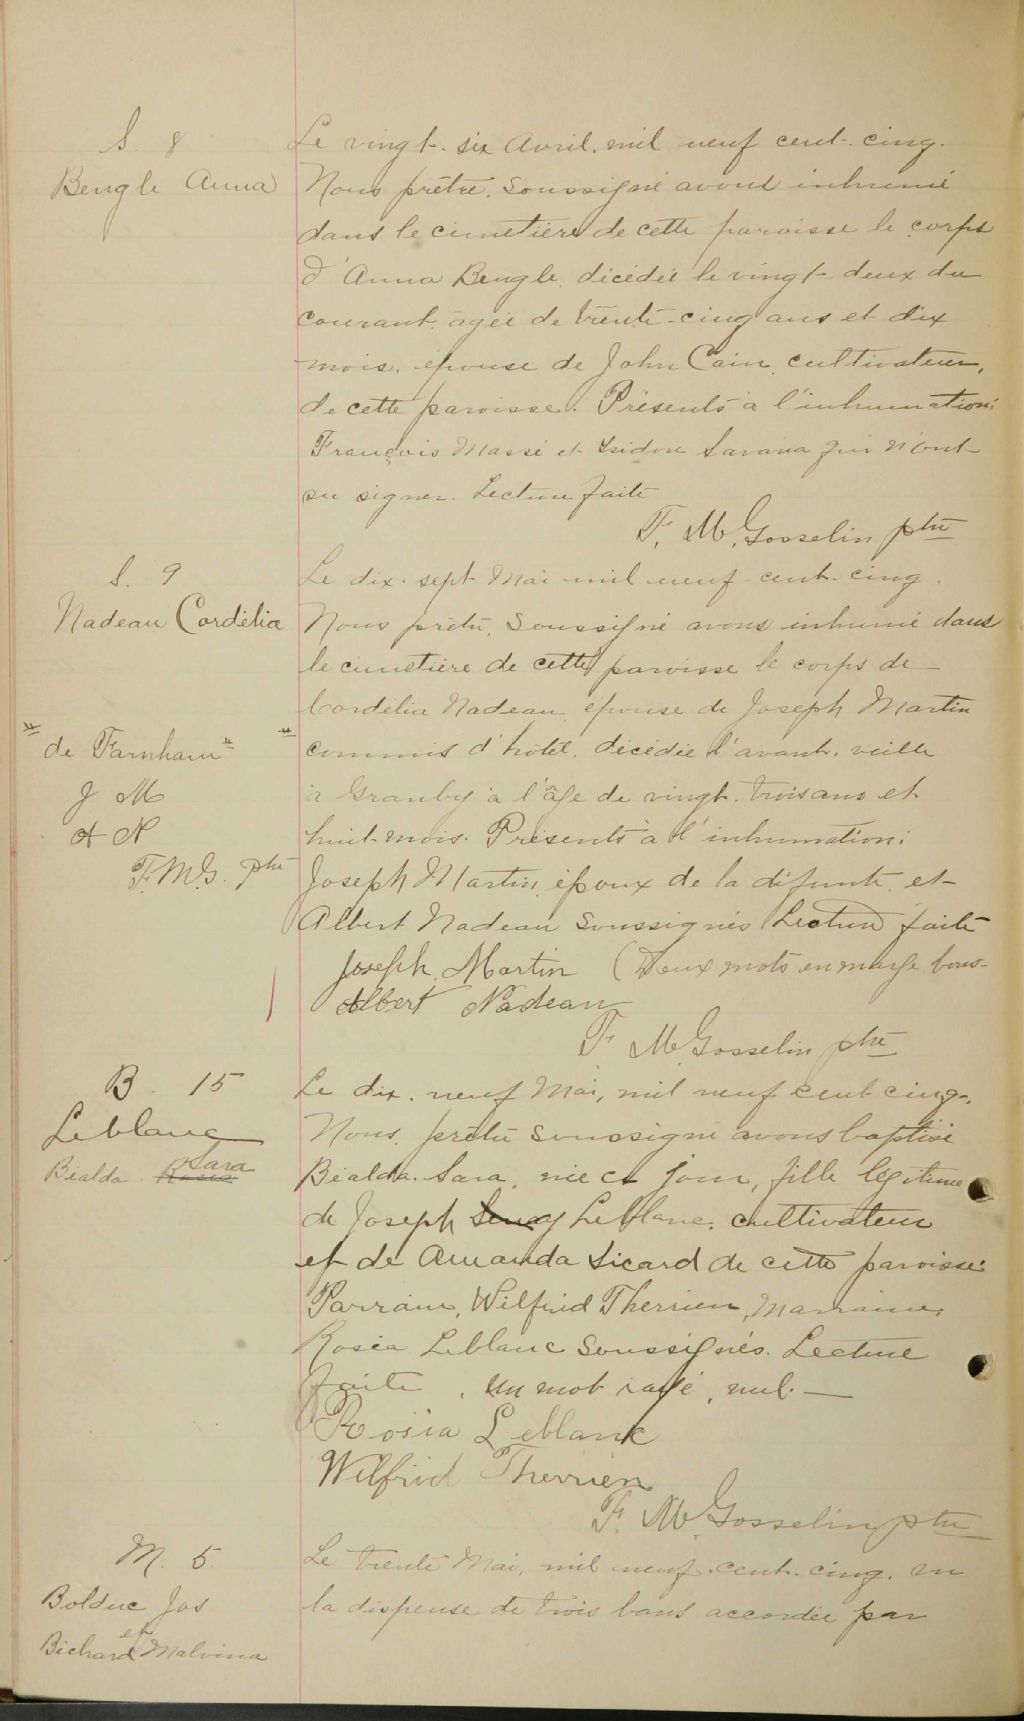 S. 8
Bengle Anna
Le vingt-six Avril, mil neuf cent-cinq.
Nous prêtre, soussigné avons inhumé
dans le cimetière de cette paroisse le corps
d'Anna Bengle, décédée le vingt-deux du
courant, agée de trente-cinq ans et dix
mois, épouse de John Cain, cultivateur,
de cette paroisse. Présents à l'inhumation:
François Massé et Isidore Savaria qui n'ont
su signer. Lecture faite
F. M. Gosselin ptre
S. 9
Nadeau Cordélia
Le dix-sept Mai mil neuf-cent-cinq.
Nous prêtre, soussigné avons inhumé dans
le cimetière de cette paroisse le corps de
Cordélia Nadeau, épouse de Joseph Martin
# commis d'hôtel, décédée l'avant-veille
à Granby à l'âge de vingt-trois ans et
huit-mois. Présents à l'inhumation:
Joseph Martin, époux de la défunte, et
Albert Nadeau soussignés Lecture faite
# de Farnham #
J M
A N
F. M. G. ptre
Joseph Martin (Deux mots en marge bons-
Albert Nadeau
F. M. Gosselin ptre
B. 15
Leblanc
Bealda Rosea Sara
Le dix-neuf Mai, mil neuf cent cinq,
Nous, prêtre soussigné avons baptisé
Bealda Sara, née ce jour, fille légitime
de Joseph Leblanc, cultivateur
et de Amanda Sicard de cette paroisse:
Parrain, Wilfrid Therrien, Marraine,
Roséa Leblanc soussignés. Lecture
faite, Un mot rayé, nul. —
Roséa Leblanc
Wilfrid Therrien
F. M. Gosselin ptre
M. 5.
Bolduc Jos
et
Bichard Malvina
Le trente Mai, mil neuf-cent-cinq, vu
la dispense de trois bans accordée par